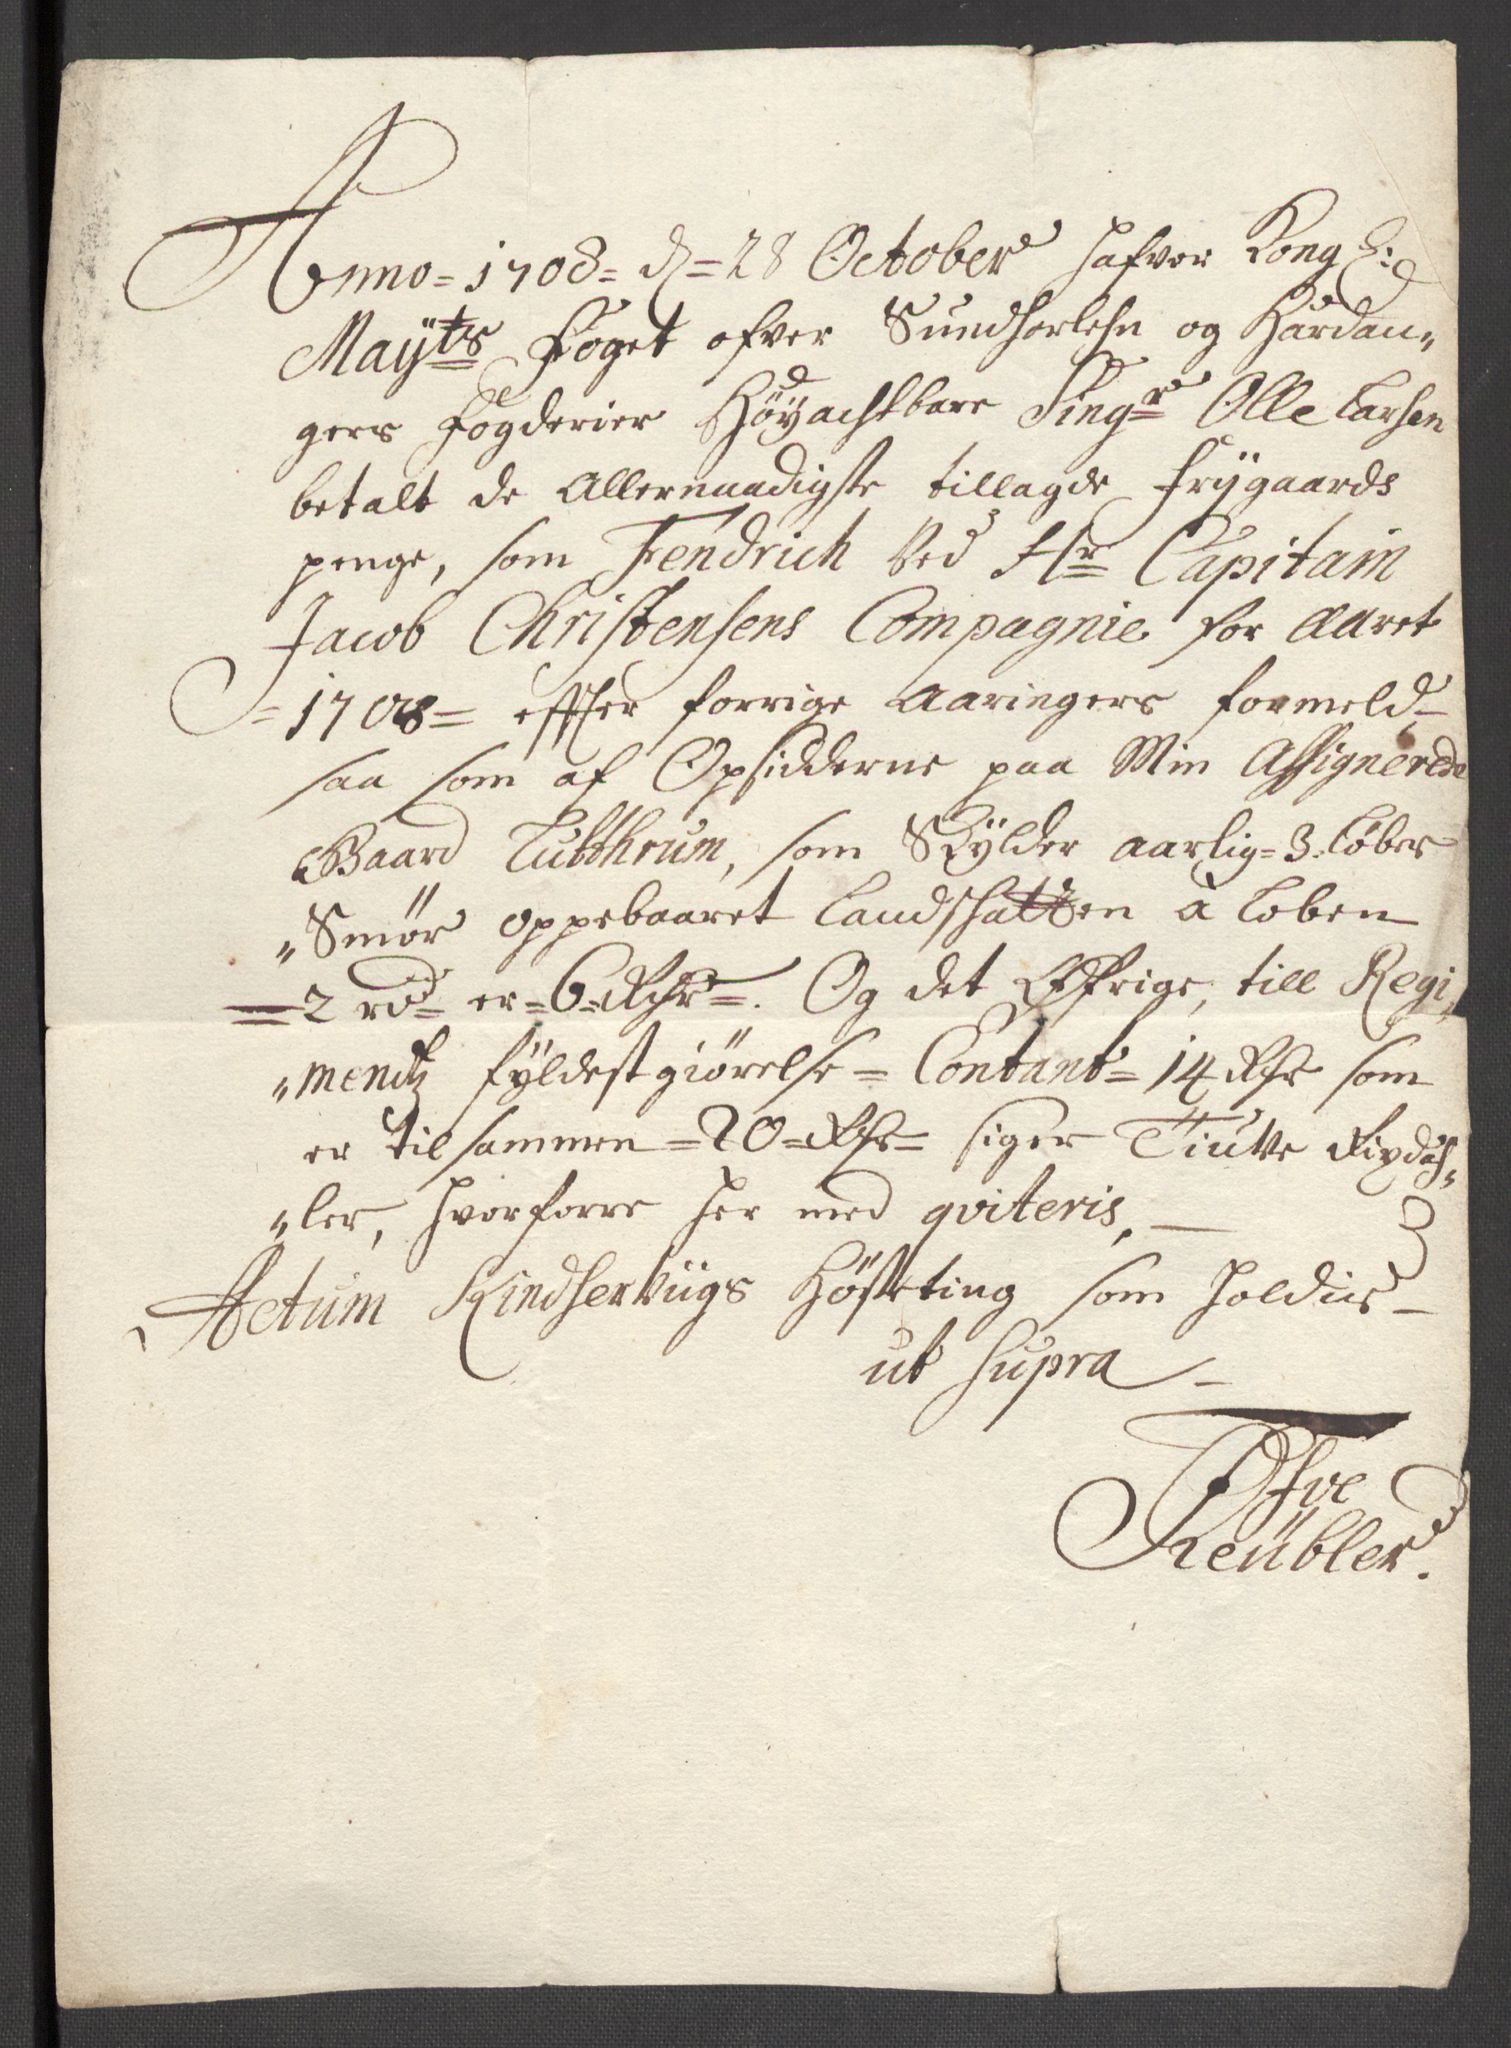 Anno = 1708 = d = 28 October hafver Kongl:
Mayts Foget ofver Sundhorlehn og Hardan„
gers Fogderier Høÿachtbare Singr Olle Larsen
betalt de Allernaadigste tillagde Frÿgaards
penge, som Fendrich Ved Hr Capitain
Jacob Christensens Compagnie for Aaret
= 1708 = effter forrige Aaringers formeld
saa som af Opsidderne paa Min Assignerede
Gaard, som Skÿlder aarlig = 3. Løber
„Smør oppebaaret Landskatten à Løben
2 rd er = 6 = Rdr =. Og det Øffrige, till Regi„
„mentz fÿldestgiørelse = Contant = 14 Rdr som
er tilsammen = 20 = Rdr = siger Tiuve Rixdah„
„ler, hvorforre her med qviteris, —
Actum Kindserviigs Høsteting som holdtes —
ut supra —
Keübler.